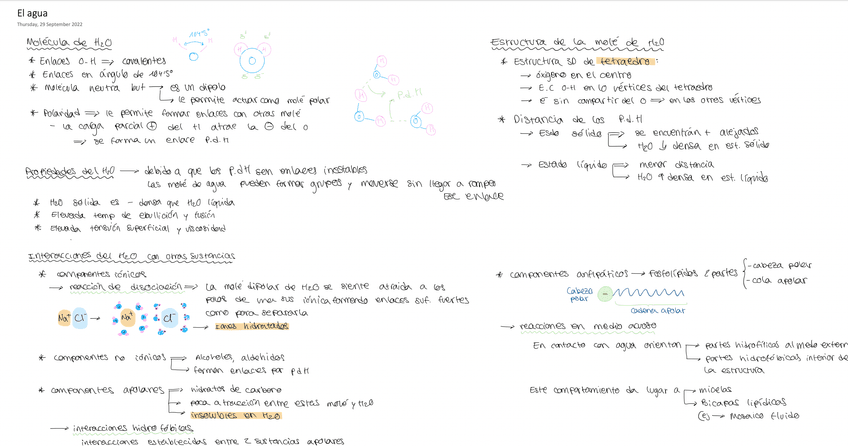 El agua
Thursday, 29 September 2022
Molécula de H₂O
* Enlaces O-H ⇒ covalentes
* Enlaces en ángulo de 104'5°
* molécula neutra but → es un dipolo
↳ le permite actuar como molé polar
* Polaridad ⇒ le permite formar enlaces con otras molé
- la carga parcial ⊕ del H atrae la ⊖ del O
⇒ se forma un enlace P.d.H
104'5°
H H
O
P.d.H
Propiedades del H₂O → debido a que los P.d.H son enlaces inestables
las molé de agua pueden formar grupos y moverse sin llegar a romper
ese enlace
* H₂O sólida es - densa que H₂O líquida
* Elevada temp de ebullición y fusión
* Elevada tensión superficial y viscosidad
Interacciones del H₂O con otras sustancias
* componentes iónicos
→ reacción de disociación ⇒ la molé dipolar de H₂O se siente atraída a los
polos de una sus iónica formando enlaces suf. fuertes
como para separarla
↳ iones hidratados
Na⁺ Cl⁻ → Na⁺ Cl⁻
* componentes no iónicos ⇒ alcoholes, aldehidos
⇒ forman enlaces por P.d.H
* componentes apolares ⇒ hidratos de carbono
→ poca atracción entre estas molé y H₂O
→ insolubles en H₂O
→ interacciones hidrofóbicas
interacciones establecidas entre 2 sustancias apolares
Estructura de la molé de H₂O
* Estructura 3D de tetraedro:
→ oxígeno en el centro
→ E.C O-H en lo vértices del tetraedro
→ e⁻ sin compartir del O ⇒ en los otros vértices
* Distancia de los P.d.H
→ Estado sólido → se encuentran + alejados
→ H₂O ↓ densa en est. sólido
→ Estado líquido → menor distancia
→ H₂O ↑ densa en est. líquido
* componentes anfipáticos → Fosfolípidos 2 partes { - cabeza polar
- cola apolar
Cabeza polar
cadena apolar
→ reacciones en medio acuoso
En contacto con agua orientan → partes hidrofílicas al medio extern
→ partes hidrofóbicas interior de
la estructura
Este comportamiento da lugar a → micelas
→ Bicapas lipídicas
→ mosaico fluido